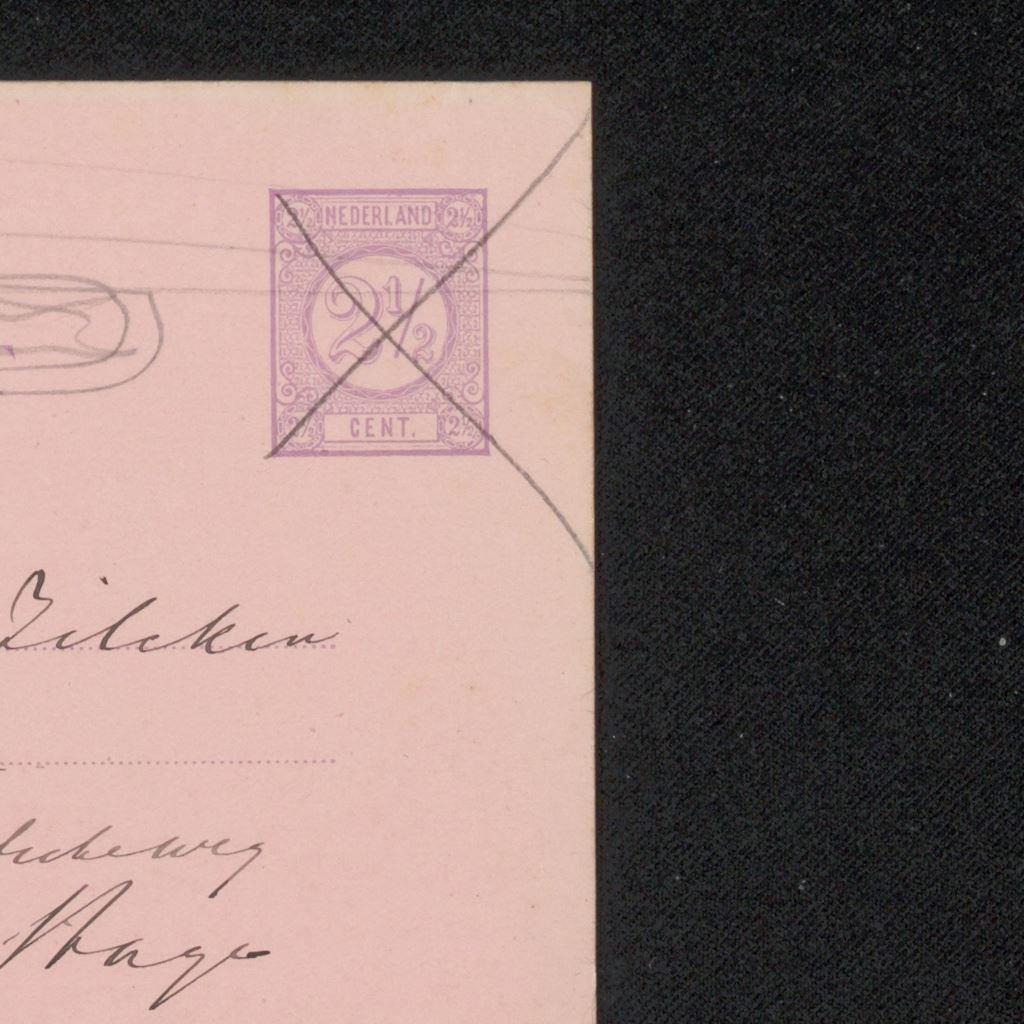 2½ NEDERLAND 2½
2½
2½ CENT. 2½
Zilcken
Hage